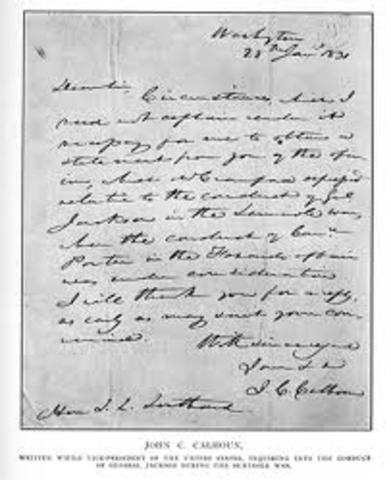 Washington
28th Jany 1831
Dear Sir,
Circumstances, which I
need not explain render it
necessary for me to obtain a
statement from you of the opin
ion, which Mr Crawford expressed
relative to the conduct of Genl
Jackson in the Seminole war,
when the conduct of
Porter in the affair
was under consideration
I will thank you for a reply,
as early as may suit your con
venience.
With sincere regard
Yours &c
J. C. Calhoun
Hon S. L. Southard
JOHN C. CALHOUN,
WRITTEN WHILE VICE-PRESIDENT OF THE UNITED STATES, INQUIRING INTO THE CONDUCT
OF GENERAL JACKSON DURING THE SEMINOLE WAR.